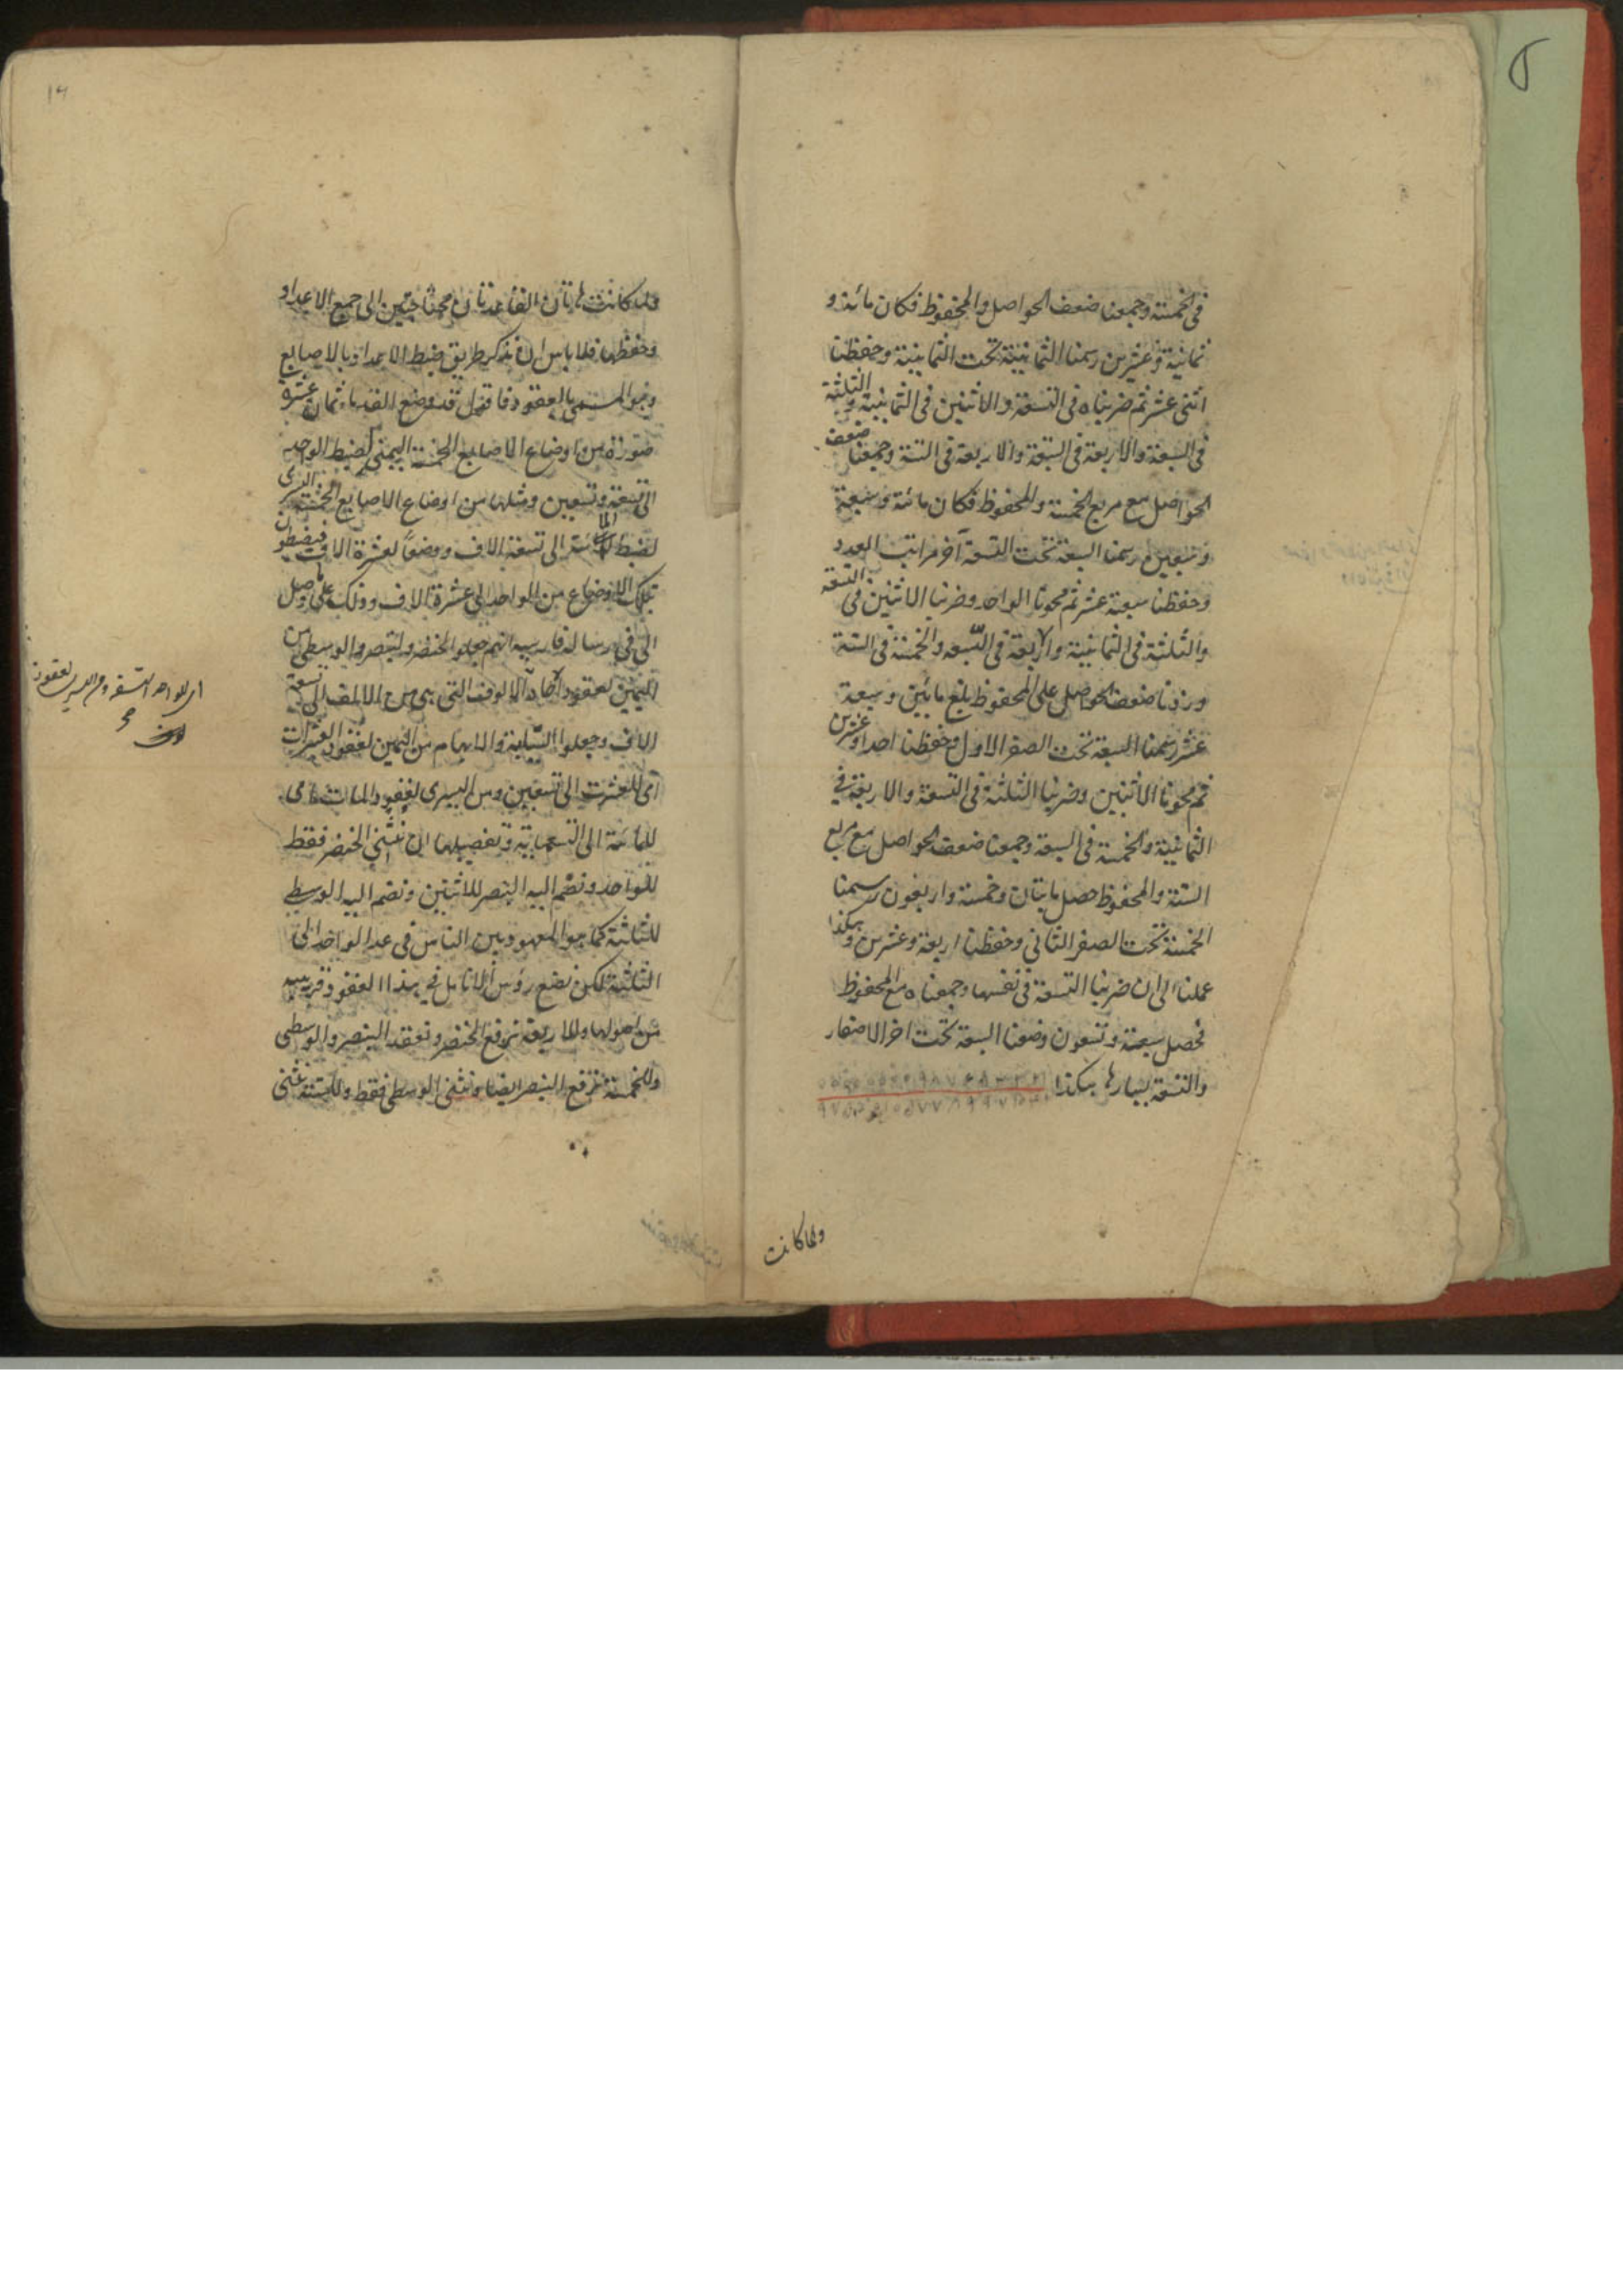 في الخمسة وجمعنا ضعف الحواصل والمحفوظ فكان مائة و
ثمانية وعشرين رسمنا الثمانية تحت الثمانية وحفظنا
اثنى عشر ثم ضربناه في التسعة والاثنين في الثمانية والثلثة
في السبعة والاربعة في السبعة والاربعة في الستة وجمعنا ضعف
الحواصل مع مربع الخمسة والمحفوظ فكان مائة وسبعة
وسبعين رسمنا السبعة تحت التسعة آخر مراتب العدد
وحفظنا سبعة عشر ثم محونا الواحد وضربنا الاثنين في التسعة
والثلثة في الثمانية والاربعة في السبعة والخمسة في الستة
وزدنا ضعف الحواصل على المحفوظ بلغ مائتين وسبعة
عشر رسمنا السبعة تحت الصفر الاول وحفظنا احدا وعشرين
ثم محونا الاثنين وضربنا الثلثة في التسعة والاربعة في
الثمانية والخمسة في السبعة وجمعنا ضعف الحواصل مع مربع
الستة والمحفوظ حصل مايتان وخمسة واربعون رسمنا
الخمسة تحت الصفر الثاني وحفظنا اربعة وعشرين وهكذا
عملنا الى ان ضربنا التسعة في نفسها وجمعناه مع المحفوظ
فحصل سبعة وتسعون وضعنا السبعة تحت اخر الاصفار
والتسعة يسارها هكذا
ولما كانت
ولما كانت هاتان القاعدتان محتاجتين الى جمع الاعداد
وحفظها فلا باس ان نذكر طريق ضبط الاعداد بالاصابع
وهو المسمى بالعقود فاقول قد وضع القدماء ثمان عشرة
صورة من اوضاع الاصابع الخمسة اليمنى لضبط الواحد
الى تسعة وتسعين ومثلها من اوضاع الاصابع الخمسة اليسرى
لضبط المائة الى تسعة الاف ووضعا لعشرة الاف فيضبطون
بتلك الاوضاع من الواحد الى عشرة الاف وذلك على ما وصل
الى في رسالة فارسيه انهم جعلوا الخنصر والبنصر والوسطى من
اليمين لعقود آحاد الالوف التي هي من الالف الى تسعة
الاف وجعلوا السبابة والابهام من اليمين لعقود العشرات
اى للعشرة الى تسعين ومن اليسرى لعقود المات اى
للمائة الى التسعماية وتفصيلها ان نثني الخنصر فقط
للواحد ونضم اليه البنصر للاثنين ونضم اليه الوسطى
للثلثة كما هو المعهود بين الناس في عد الواحد الى
الثلثة لكن نضع رؤس الانامل في هذا العقود قريبه
من اصولها وللاربعة نرفع الخنصر ونعقد البنصر والوسطى
وللخمسة نرفع البنصر ايضا ونثنى الوسطى فقط وللستة نثنى